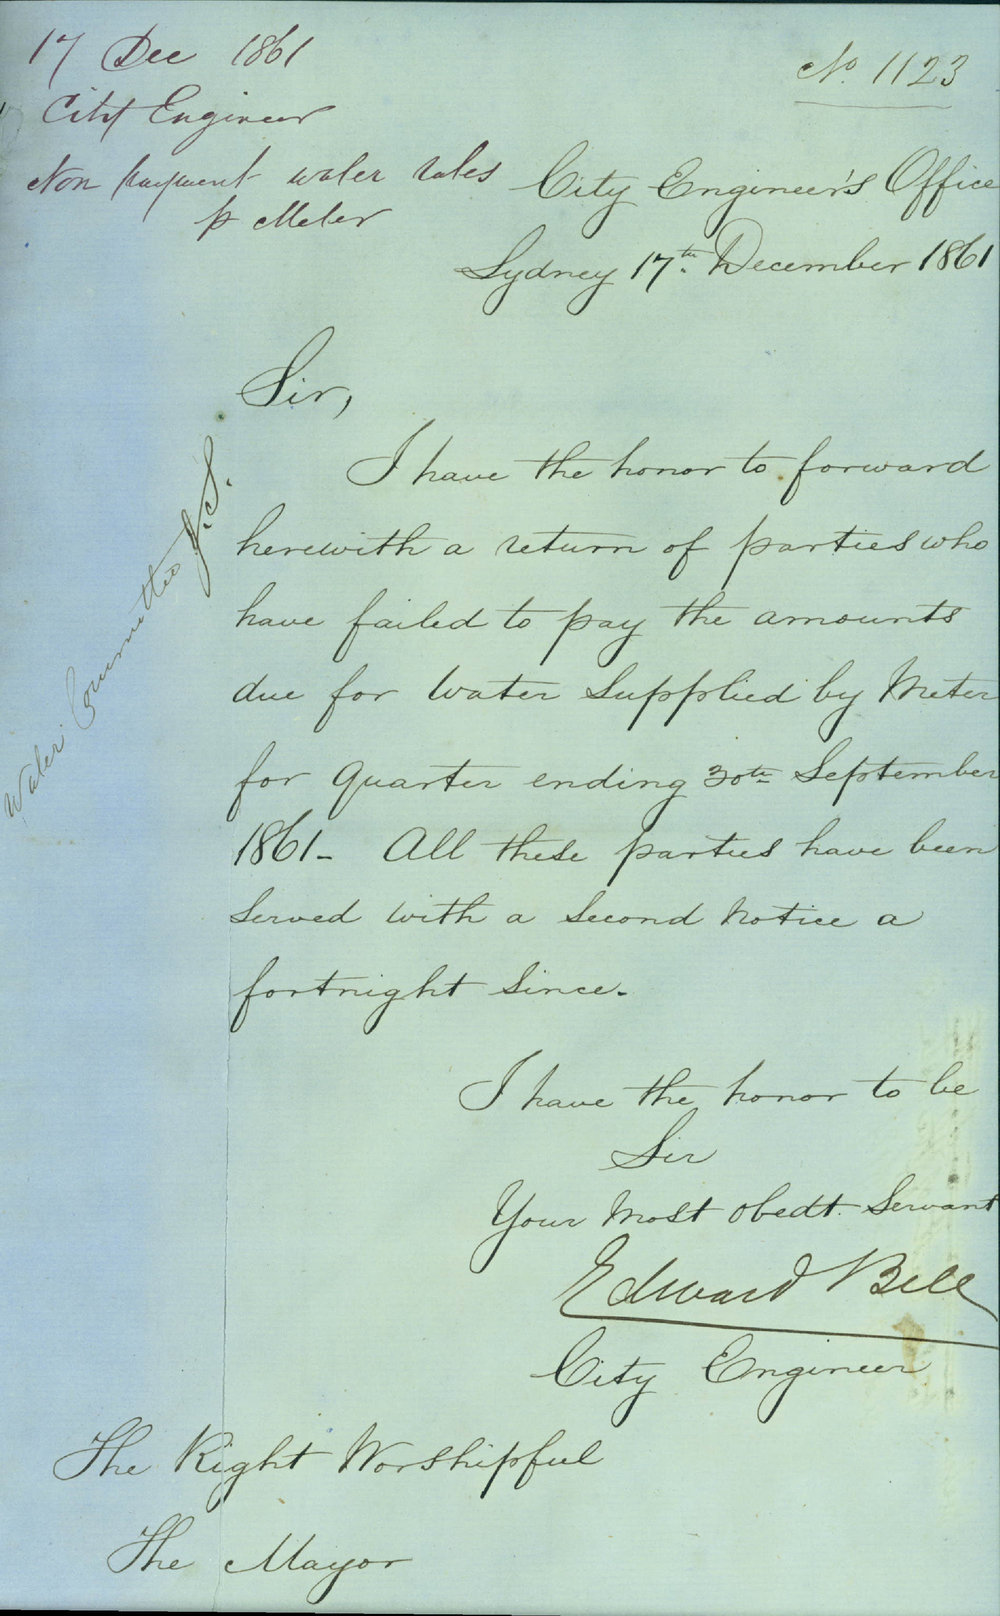 17 Dec 1861
City Engineer
Non payment water rates
p Meter
No. 1123
City Engineer's Office
Sydney 17th. December 1861
Sir,
I have the honor to forward
herewith a return of parties who
have failed to pay the amounts
due for Water Supplied by Meter
for Quarter ending 30th September
1861- All these parties have been
Served with a Second Notice a
fortnight Since.
Water Committee J.S.
I have the honor to be
Sir
Your Most Obedt. Servant
Edward Bell
City Engineer
The Right Worshipful
The Mayor